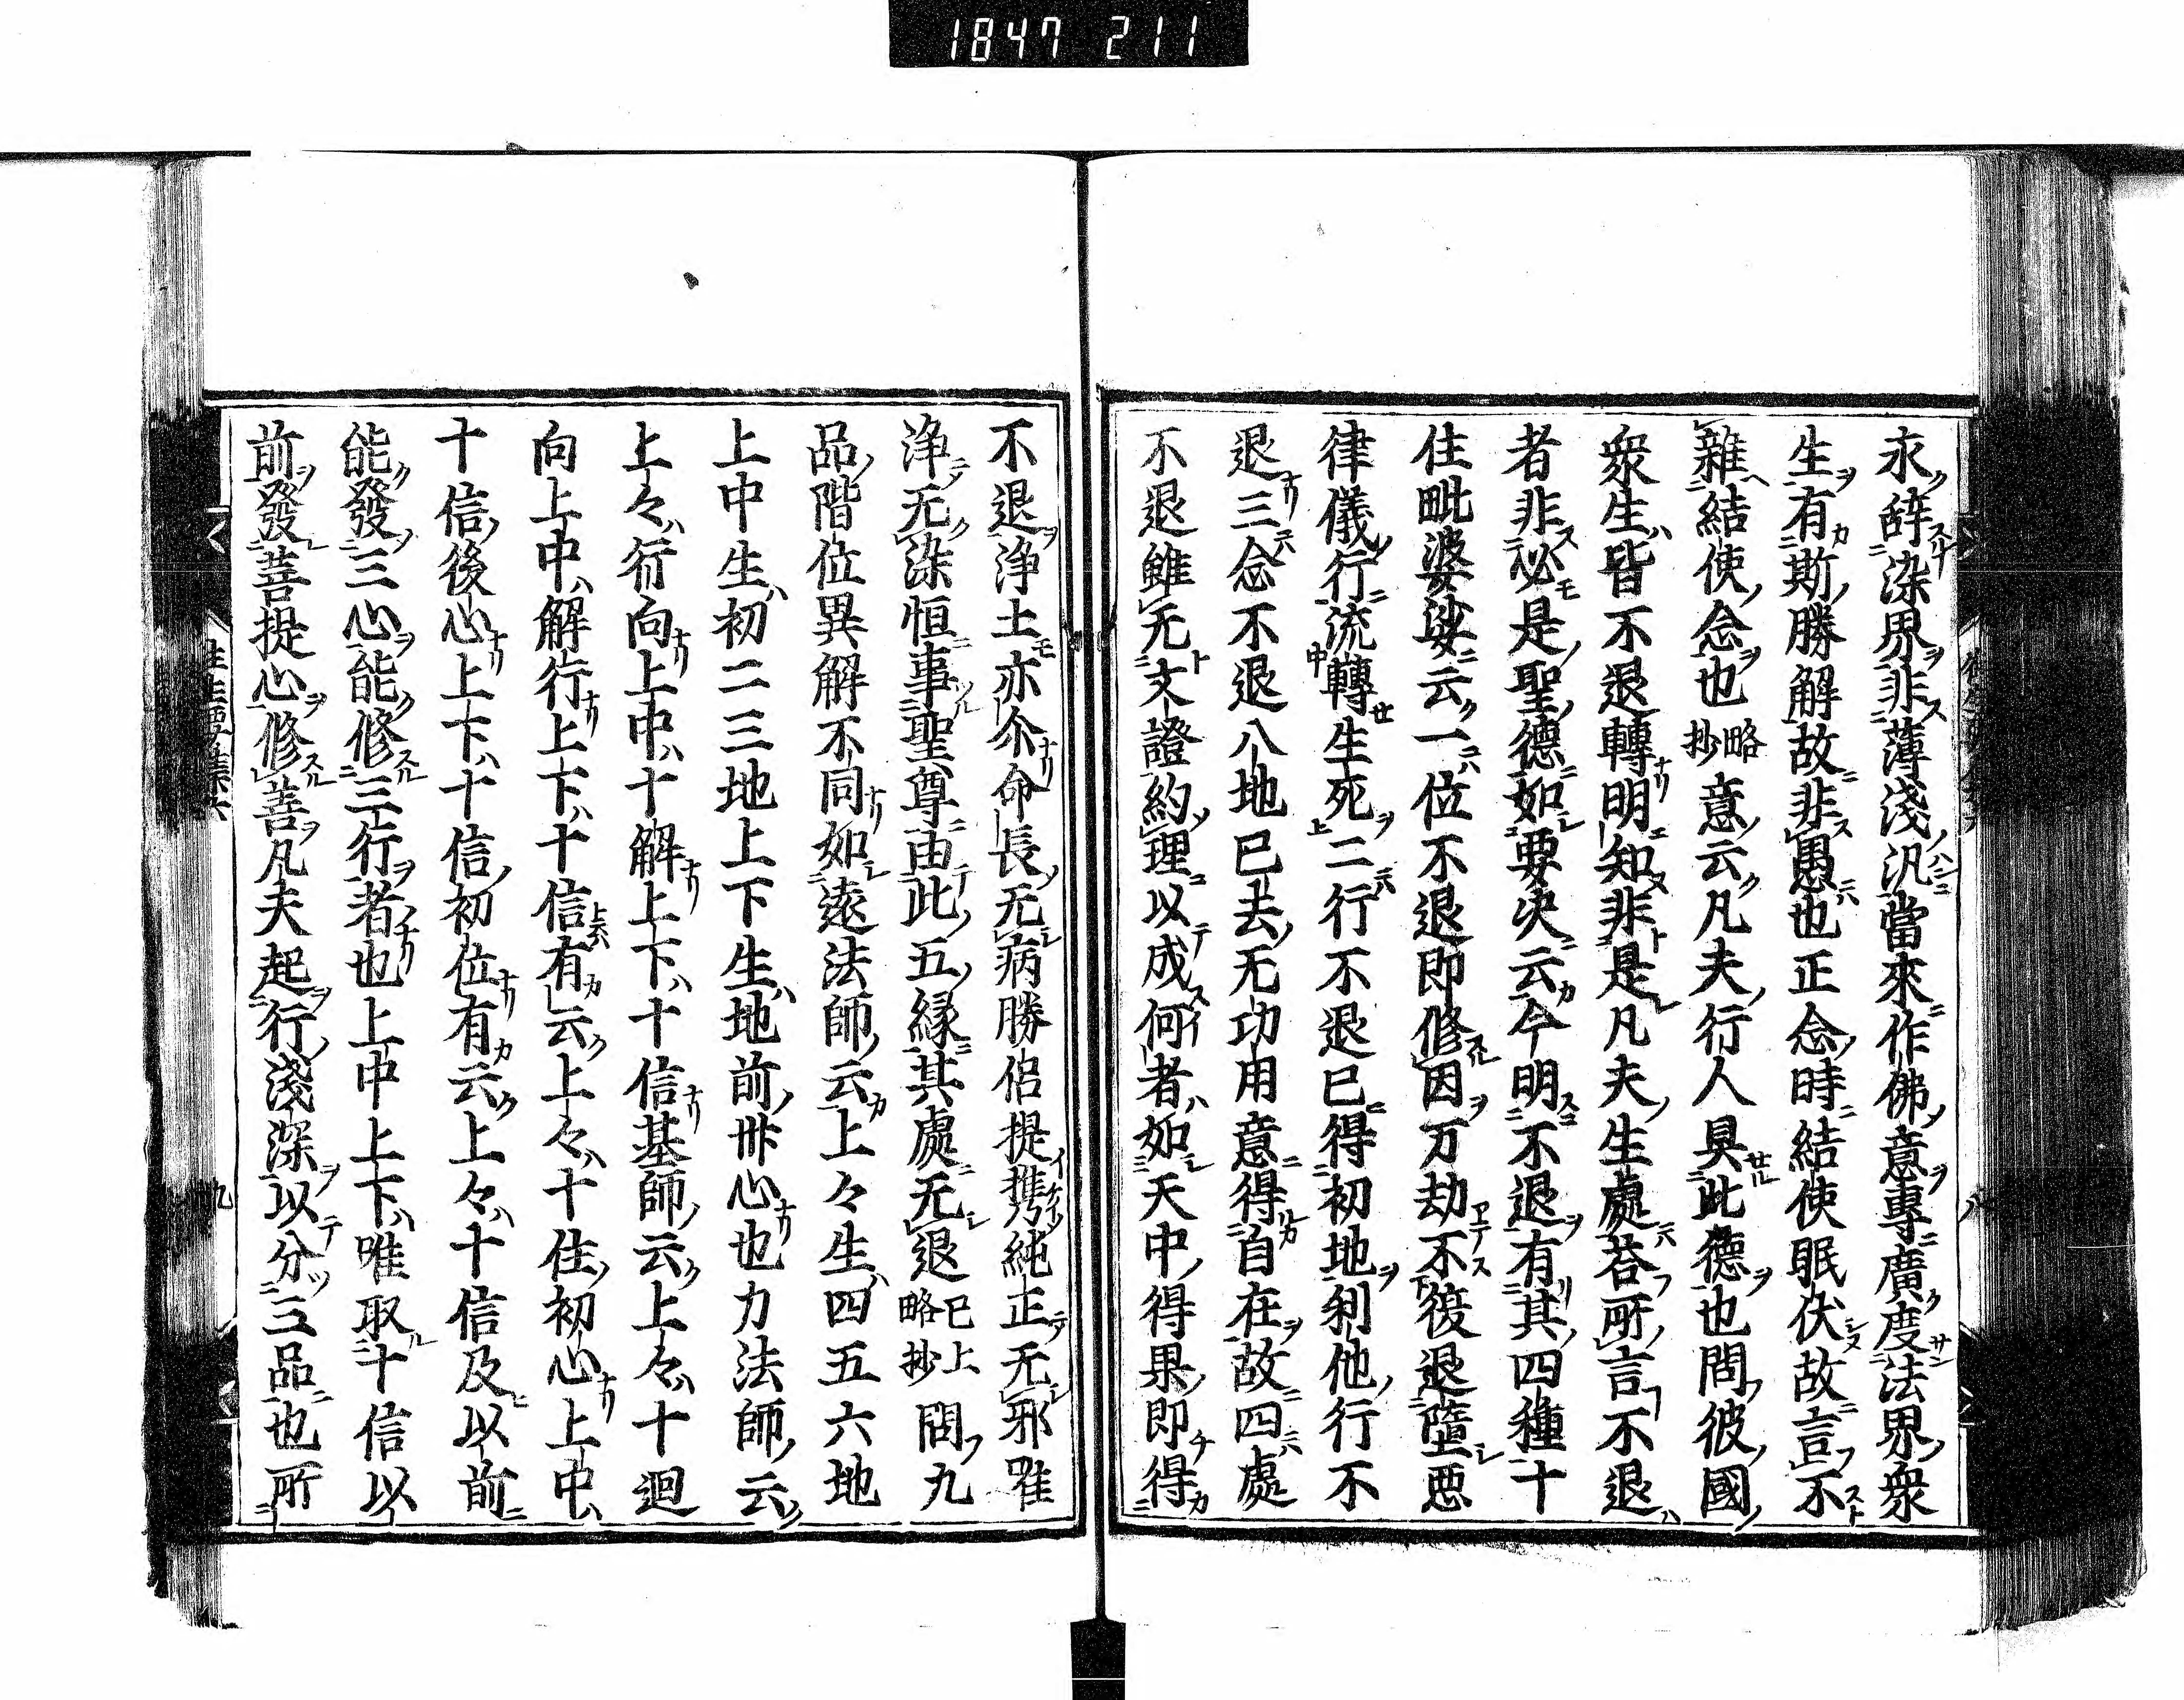 1847 211
永辞染界非薄淺汎當來作佛意專廣度法界衆
生有斯勝解故非愚也正念時結使眠伏故言不
雜結使念也略抄意云凡夫行人具此德也問彼國
衆生皆不退轉明知非是凡夫生處荅所言不退
者非必是聖德如要决云今明不退有其四種十
住毗婆娑云一位不退即修因万劫不復退墮悪
律儀行流轉生死二行不退已得初地利他行不
退三念不退八地已去无功用意得自在故四處
不退雖无文證約理以成何者如天中得果即得
不退浄土亦尒命長无病勝侶提携純正无邪唯
浄无染恒事聖尊由此五緣其處无退已上略抄問九
品階位異解不同如遠法師云上々生四五六地
上中生初二三地上下生地前卅心也力法師云
上々行向上中十解上下十信基師云上々十迴
向上中解行上下十信有云上々十住初心上中
十信後心上下十信初位有云上々十信及以前
能發三心能修三行者也上中上下唯取十信以
前發菩提心修善凡夫起行淺深以分三品也所
往生要集六
九